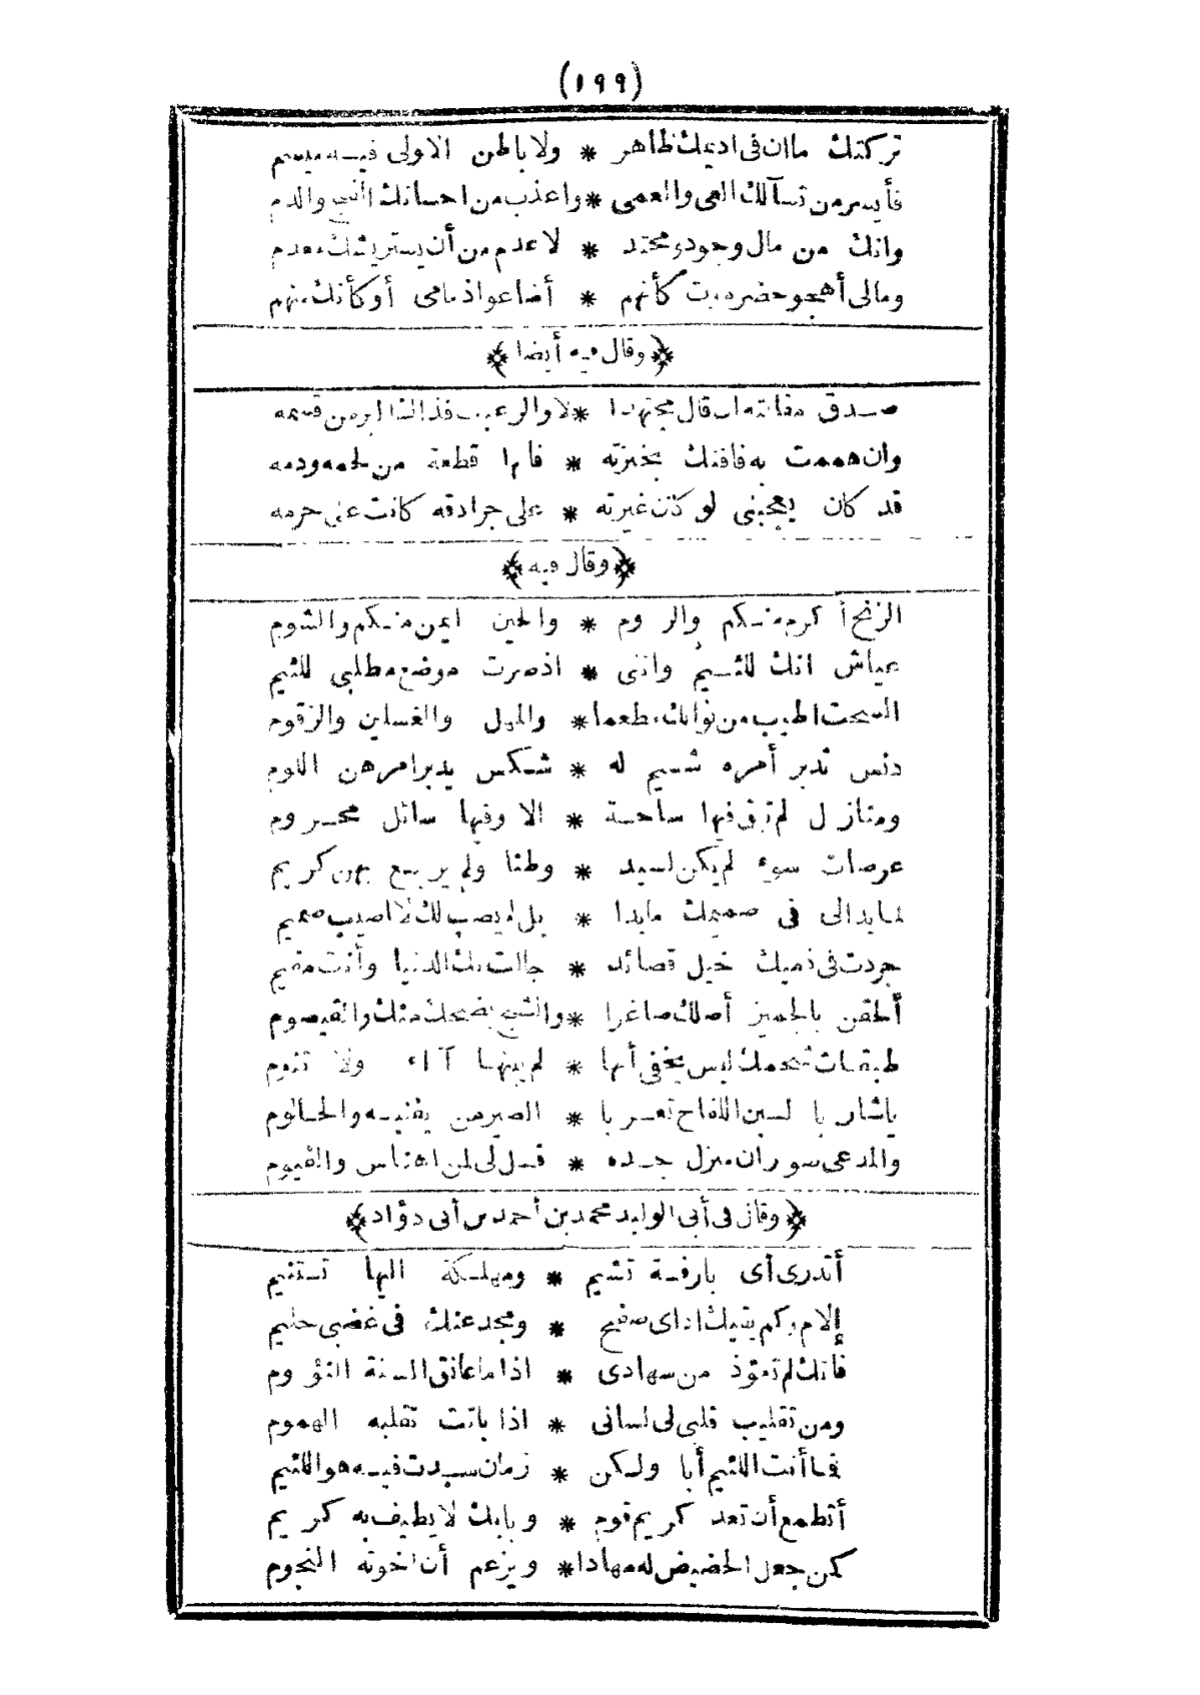 (١٩٩)
تركتك ما ان فى اديمك ظاهر * ولا باطن الاولى فيه ميسم
فأيسر من تسآلك العى والعمى * واعذب من احسانك القيح والدم
وانك من مال وجود ومحتد * لاعدم من أن يستريشك معدم
ومالى أهجو حضرموت كأنهم * أضاعوا ذمامى أو كأنك منهم
﴿ وقال فيه أيضا ﴾
صدق مقالته ان قال مجتهدا * لا والرغيف فذاك البر من قسمه
وان هممت به فافتك بخبزته * فانها قطعة من لحمه ودمه
قد كان يعجبنى لو كان غيرته * على جرادقه كانت على حرمه
﴿ وقال فيه ﴾
الزنج أكرم منكم والروم * والحين ايمن منكم والشوم
عياش انك للئيم واننى * اذ صرت موضع مطلبى للئيم
السحت اطيب من نوالك مطعما * والمهل والغسلين والزقوم
دنس تدبر أمره شيم له * شكس يدبر امرهن اللوم
ومنازل لم تبق فيها ساحة * الا وفيها سائل محروم
عرصات سوء لم يكن لسيد * وطنا ولم يربع بهن كريم
لما بدالى فى صميمك مابدا * بل لم يصب لك لا اصيب صميم
جردت فى ذميك خيل قصائد * جالت بك الدنيا وأنت مقيم
ألحقن بالجميز أصلك صاغرا * والشيح يضحك منك والقيصوم
طبقات شحمك ليس يخفى أنها * لم يبنها آاء ولا تنوم
ياشاربا لبن اللقاح تعربا * الصير من يفنيه والحالوم
والمدعى سوران منزل جده * قل لى لمن اهناس والفيوم
﴿ وقال فى أبى الوليد محمد بن أحمد بن أبى دؤاد ﴾
أتدرى أى بارقة تشيم * ومهلكة اليها تستنيم
إلام وكم يقيك اذاى صفح * ومجد عنك فى غضبى حليم
فانك لم تعوذ من سهادى * اذا ما عانق السنة النؤوم
ومن تقليب قلبى لى لسانى * اذا باتت تقلبه الهموم
فما أنت اللئيم أبا ولكن * زمان سدت فيه هو اللئيم
أتطمع أن تعد كريم قوم * وبابك لا يطيف به كريم
كمن جعل الحضيض له مهادا * ويزعم أن اخوته النجوم